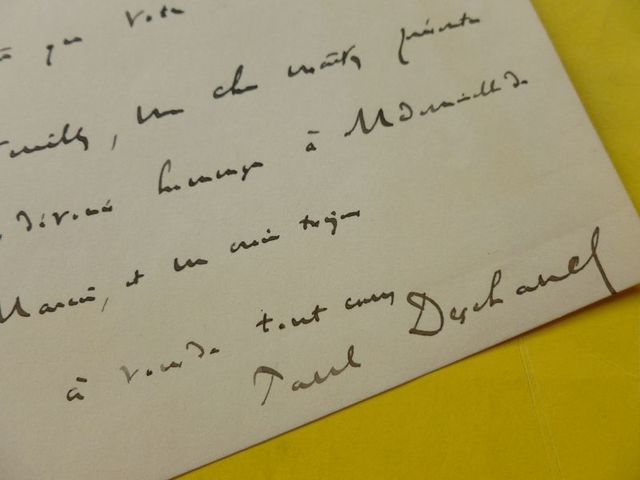 que vous
, mon cher maître, présenter
dévoué hommage à Mademoiselle de
, et me croire toujours
à vous de tout cœur
Paul Deschanel